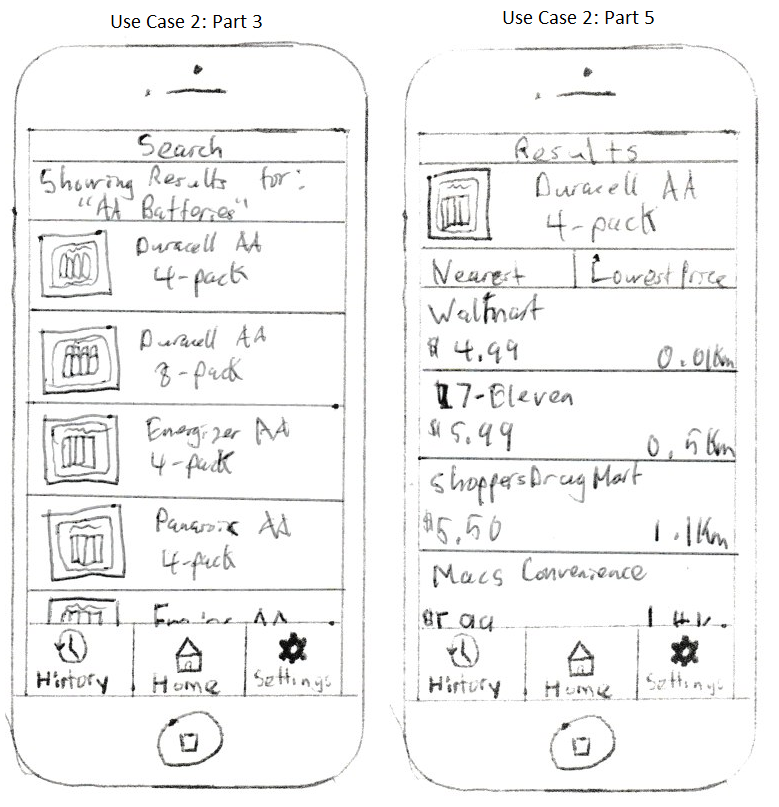 Use Case 2: Part 3
Search
Showing Results for:
"AA Batteries"
Duracell AA
4-pack
Duracell AA
8-pack
Energizer AA
4-pack
Panasonic AA
4-pack
AA
History
Home
Settings
Use Case 2: Part 5
Results
Duracell AA
4-pack
Nearest
Lowest Price
Walmart
$4.99
0.01Km
7-Eleven
$5.99
0.5Km
Shoppers Drug Mart
$5.50
1.1Km
Macs Convenience
History
Home
Settings